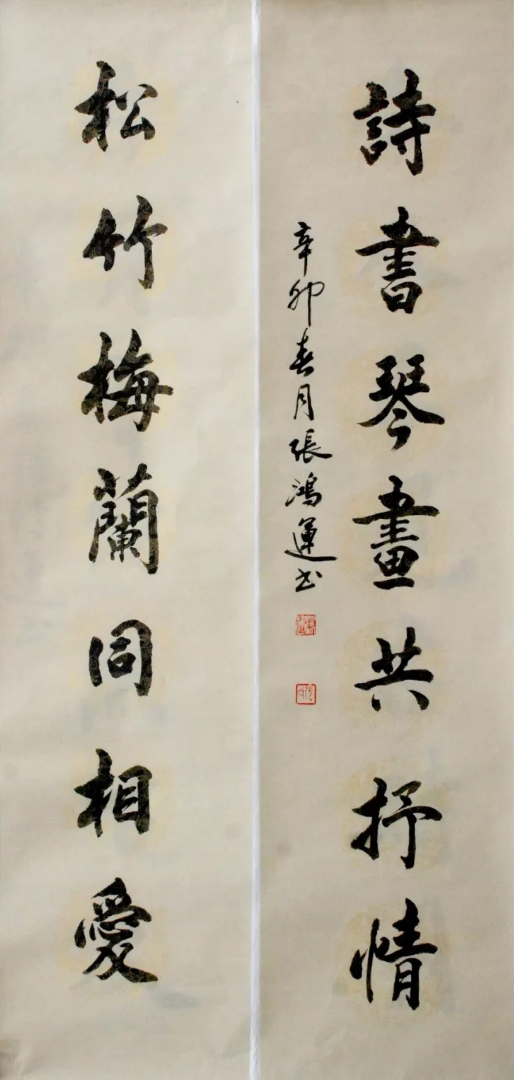 詩書琴畫共抒情
辛卯春月張鴻運书
松竹梅蘭同相愛